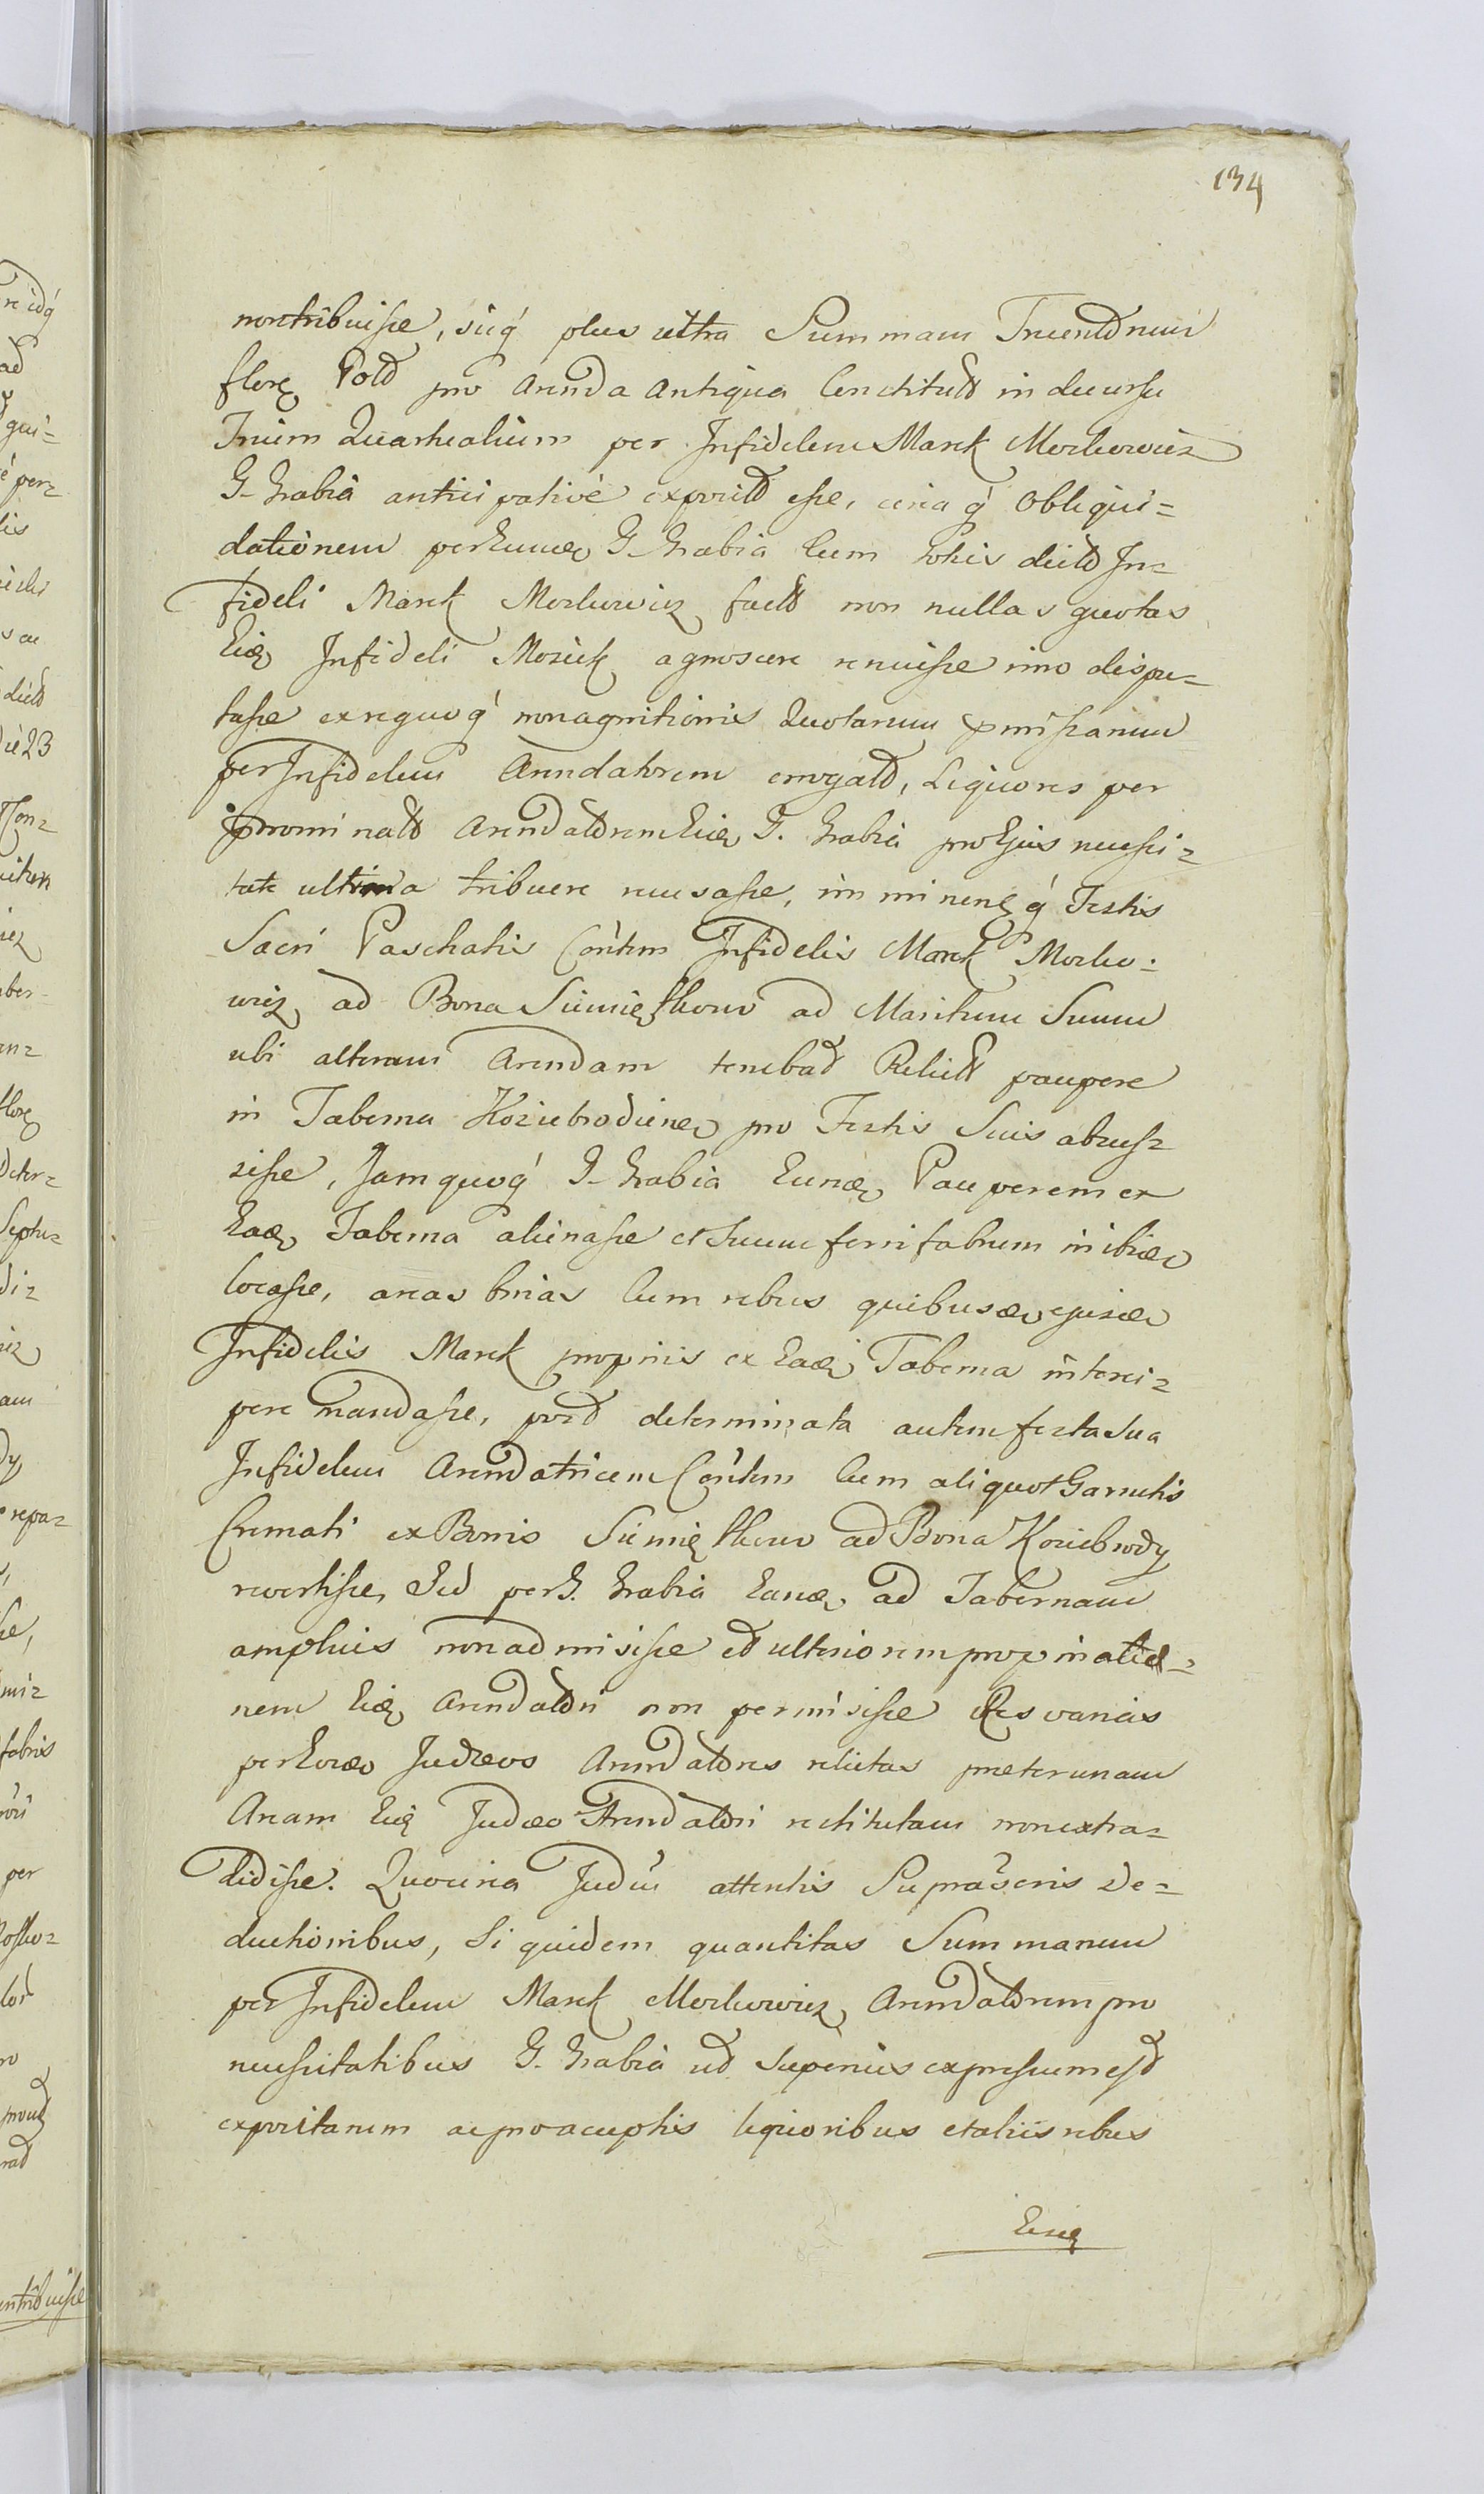 134
nontribuisse, sicq́ plus ultra Summam Trecentorum
floren Pold pro Arenda Antiqua Constitutd in decursu
Trium Quartualium per Infidelem Marek Morkowicz
G. Grabia anticipativé exporitd esse, circaq́ Obliqui=
dationem per Eunnde G Grabia Cum totis dictd In=
fideli Marek Morkowicz factd non nullas quotas
Eid Infideli Mosiek agnoscere renuisse imo dispu=
tasse ex reqvoq́ nonagnitionis Quotarum pmissarum
per Infidelem Arendatorem erogatd, Liquores per
pnominatd Arendatorem Eid G. Grabia pro Ejus necessi=
tate ultima tribuere recusasse, imminenq́ Festis
Sacri Paschatis Contem Infidelis Marek Morko=
wicz ad Bona Siemięthow ad Maritum Suum
ubi alteram Arendam tenebad Relictd paupere
in Taberna Koziebrodien pro Festis Suis abces=
sisse, Jamquoq́ G. Grabia Eund Pauperem ex
Ead Taberna alienasse et Suum ferrifabrum inibid
locasse, arcas binas Cum rebus quibusd ejusd
Infidelis Marek propriis ex Ead Taberna interci=
pere mandasse, post determinata autem festa Sua
Infidelem Arendatricem Contem Cum aliquot Garnetis
Cremati ex Bonis Siemięthow ad Bona Koziebrody
revertisse, Sed per G. Grabia Eand ad Tabernam
amplius non admisisse et ulteriorem propinatio=
nem Eid Arendatori non permisisse Res varias
per Eosd Judæos Arendatores relictas præter unam
Arcam Eid Judæo Arendatori restitutam nonextra=
didisse. Quocirca Judm attentis Suprascris De=
ductionibus, Siquidem quantitas Summarum
per Infidelem Marek Morkowicz Arendatorem pro
necessitatibus G. Grabia ut Superius expressum est
exporitarum ac pro acceptis liquoribus et aliis rebus
Eisd